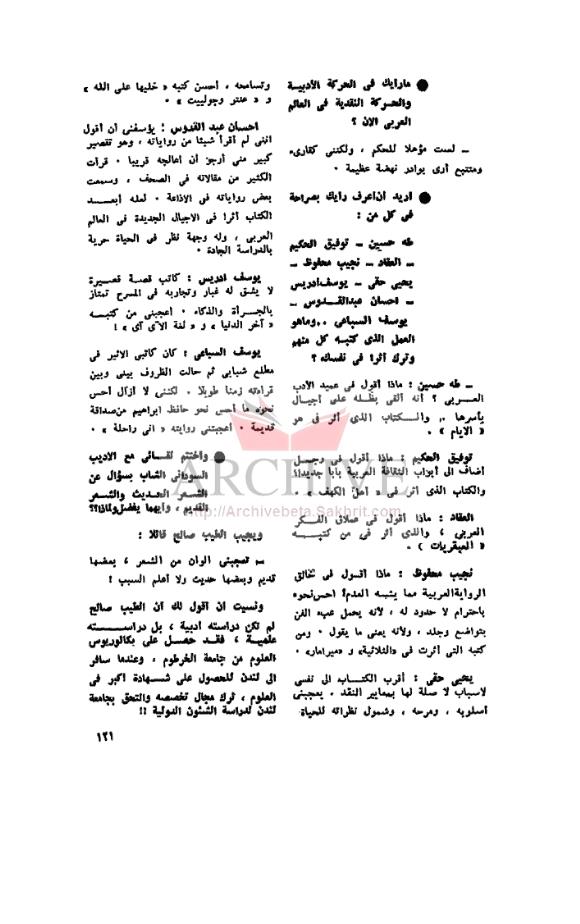 ● مارأيك في الحركة الأدبية
والحركة النقدية في العالم
العربي الآن ؟
ــ لست مؤهلا للحكم ، ولكنني كقارىء
ومتتبع أرى بوادر نهضة عظيمة ٠
● أريد أن أعرف رأيك بصراحة
في كل من :
طه حسين ــ توفيق الحكيم
ــ العقاد ــ نجيب محفوظ ــ
يحيى حقي ــ يوسف ادريس
ــ احسان عبدالقدوس ــ
يوسف السباعي ٠٠ وماهو
العمل الذي كتبه كل منهم
وترك أثرا في نفسك ؟
ــ طه حسين : ماذا أقول في عميد الأدب
العربي ؟ أنه ألقى بظله على أجيال
بأسرها ٠٠ والكتاب الذي أثر في هو
« الأيام » ٠
توفيق الحكيم : ماذا أقول في رجل
أضاف الى أبواب الثقافة العربية بابا جديدا!
والكتاب الذي أثر في « أهل الكهف » ٠
العقاد : ماذا أقول في عملاق الفكر
العربي ، والذي أثر في من كتبه
« العبقريات » ٠
نجيب محفوظ : ماذا أقول في خالق
الرواية العربية مما يشبه العدم؟ أحس نحوه
باحترام لا حدود له ، لأنه يحمل عبء الفن
بتواضع وجلد ، ولأنه يعنى ما يقول ٠ ومن
كتبه التي أثرت في «الثلاثية» و «ميرامار» ٠
يحيى حقي : أقرب الكتاب الى نفسي
لأسباب لا صلة لها بمعايير النقد ٠ يعجبني
أسلوبه ، ومرحه ، وشمول نظراته للحياة
وتسامحه ، أحسن كتبه « خليها على الله »
و « عنتر وجولييت » ٠
احسان عبد القدوس : يؤسفني أن أقول
انني لم أقرأ شيئا من رواياته ، وهو تقصير
كبير مني أرجو أن أعالجه قريبا ٠ قرأت
الكثير من مقالاته في الصحف ، وسمعت
بعض رواياته في الاذاعة ٠ لعله أبعد
الكتاب أثرا في الأجيال الجديدة في العالم
العربي ، وله وجهة نظر في الحياة حرية
بالدراسة الجادة ٠
يوسف ادريس : كاتب قصة قصيرة
لا يشق له غبار وتجاربه في المسرح تمتاز
بالجرأة والذكاء ٠ أعجبني من كتبه
« آخر الدنيا » و « لغة الآي آي » !
يوسف السباعي : كان كاتبي الأثير في
مطلع شبابي ثم حالت الظروف بيني وبين
قراءته زمنا طويلا ٠ لكنني لا أزال أحس
نحوه ما أحس نحو حافظ ابراهيم من صداقة
قديمة ٠ أعجبتني روايته « اني راحلة » ٠
● وأختتم لقائي مع الأديب
السوداني الشاب بسؤال عن
الشعر الحديث والشعر
القديم ، وأيهما يفضل ولماذا؟؟
ويجيب الطيب صالح قائلا :
ــ تعجبني ألوان من الشعر ، بعضها
قديم وبعضها حديث ولا أعلم السبب !
ونسيت أن أقول لك أن الطيب صالح
لم تكن دراسته أدبية ، بل دراسة
علمية ، فقد حصل على بكالوريوس
العلوم من جامعة الخرطوم ، وعندما سافر
الى لندن للحصول على شهادة أكبر في
العلوم ، ترك مجال تخصصه والتحق بجامعة
لندن لدراسة الشئون الدولية !!
١٢١
ARCHIVE
http://Archivebeta.Sakhrit.com